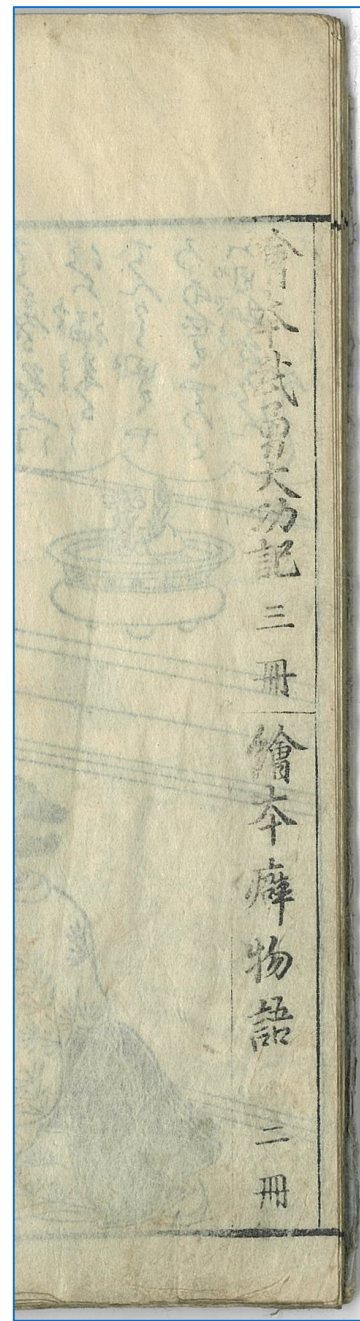 繪夲武勇大功記 三冊
繪夲癖物語 二冊